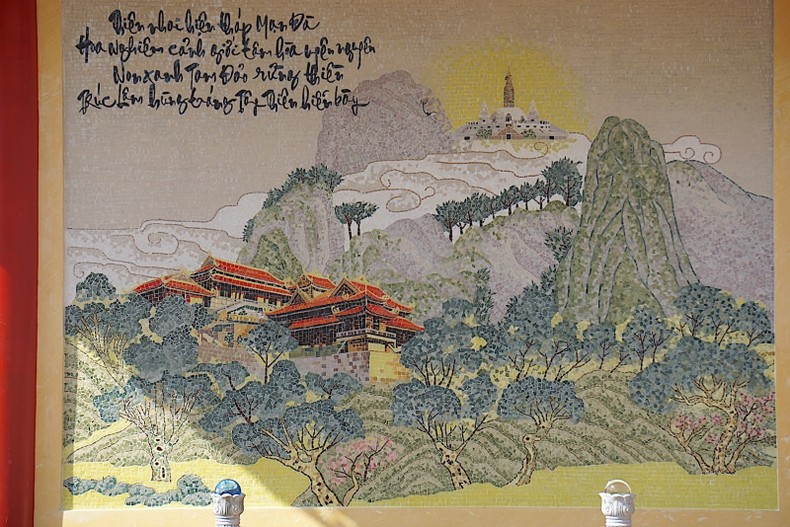 Thiên nhai hiện tháp Mạn Đà
Hoa Nghiêm cảnh giới tâm hòa uyên nguyên
Non xanh Tam Đảo rừng thiền
Trúc Lâm hùng tráng Tây Thiên hiển bày